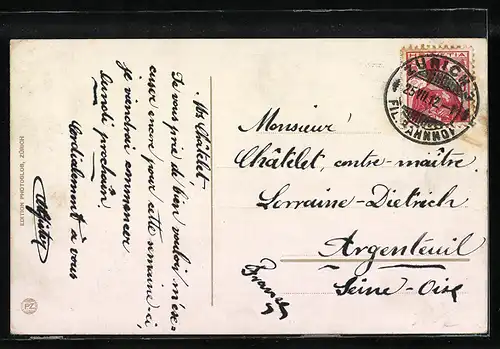 Mr Châtelet,
Je vous prie de bien vouloir m'ex-
cuser encore pour cette semaine-ci,
je viendrai commencer
lundi prochain.
Cordialement à vous
EDITION PHOTOGLOB, ZÜRICH
PZ
HELVETIA
ZÜRICH
25.III.12
FIL. BAHNHOF
Monsieur
Châtelet, contre-maître
Lorraine-Dietrich
Argenteuil
Seine-Oise
(France)